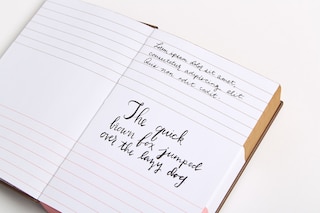 Lorem ipsum dolor sit amet,
consectetur adipiscing elit
Duis non odit sadit
The quick
brown fox jumped
over the lazy dog